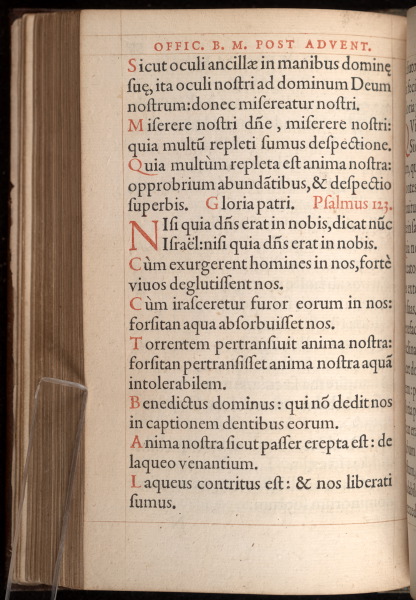 OFFIC. B. M. POST ADVENT.
Sicut oculi ancillæ in manibus dominę
suę, ita oculi noſtri ad dominum Deum
noſtrum: donec miſereatur noſtri.
Miſerere noſtri dñe, miſerere noſtri:
quia multũ repleti ſumus deſpectione.
Quia multùm repleta eſt anima noſtra:
opprobrium abundãtibus, & deſpectio
ſuperbis. Gloria patri. Pſalmus 123.
NIſi quia dñs erat in nobis, dicat nũc
Iſraël: niſi quia dñs erat in nobis.
Cùm exurgerent homines in nos, fortè
viuos deglutiſſent nos.
Cùm iraſceretur furor eorum in nos:
forſitan aqua abſorbuiſſet nos.
Torrentem pertranſiuit anima noſtra:
forſitan pertranſiſſet anima noſtra aquã
intolerabilem.
Benedictus dominus: qui nõ dedit nos
in captionem dentibus eorum.
Anima noſtra ſicut paſſer erepta eſt: de
laqueo venantium.
Laqueus contritus eſt: & nos liberati
ſumus.